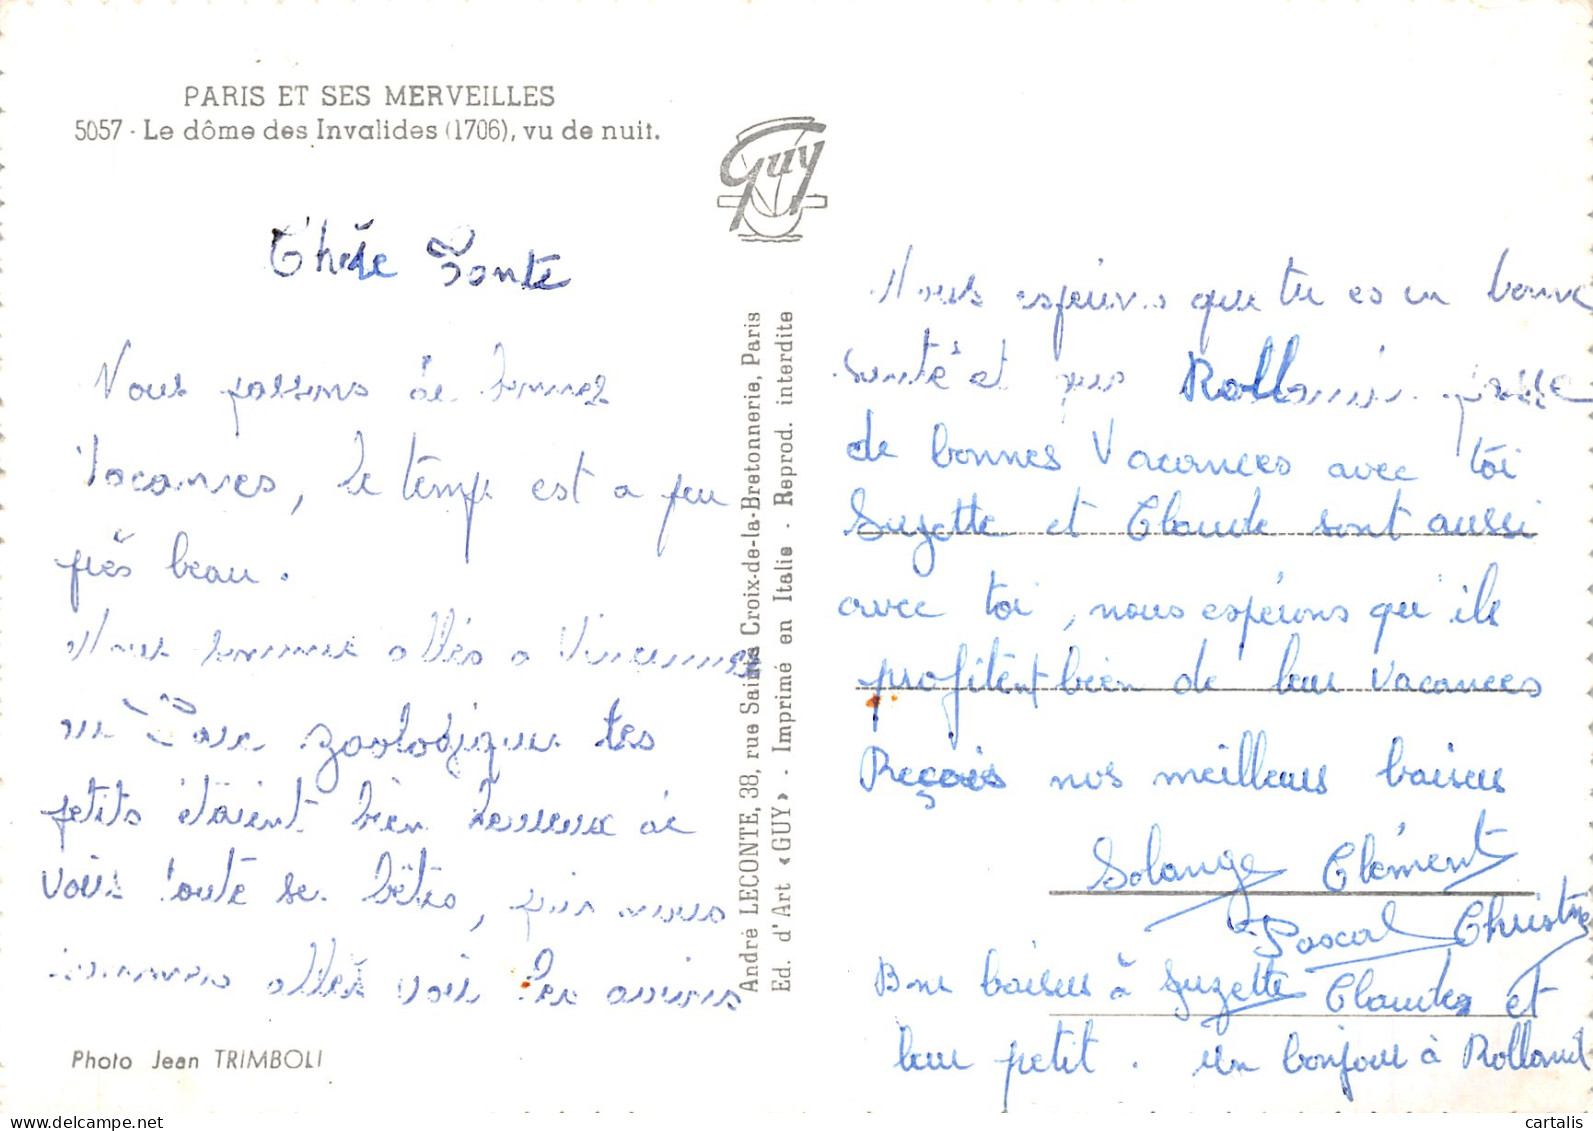 PARIS ET SES MERVEILLES
5057 - Le dôme des Invalides (1706), vu de nuit.
Guy
Chère Tante
Nous passons de bonnes
Vacances, le temp est a peu
près beau.
Nous sommes allés a Vincennes
au Parc zoologique les
petits étaient bien heureux de
voir toute se bêtes, puis nous
sommes allés voir les avions
Photo Jean TRIMBOLI
André LECONTE, 38, rue Sainte Croix-de-la-Bretonnerie, Paris
Ed. d'Art «GUY» - Imprimé en Italie - Reprod. interdite
Nous espérons que tu es en bonne
santé et que Rolland passe
de bonnes Vacances avec toi
Suzette et Claude sont aussi
avec toi, nous espérons qu'ils
profitent bien de leur vacances
Reçois nos meilleurs baisers
Solange Clément
Pascal Christine
Bons baisers à Suzette Claude et
leur petit. un bonjour à Rolland
cartalis